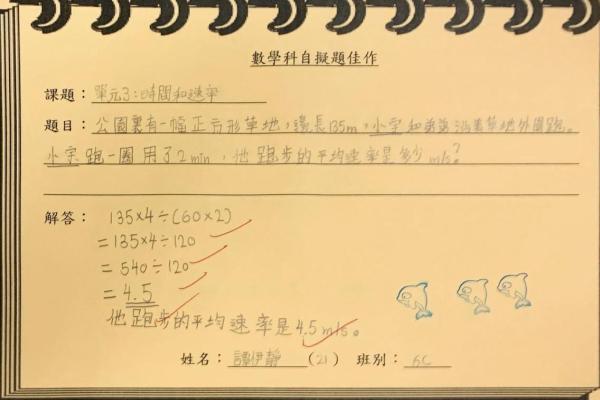 數學科自擬題佳作
課題：單元3：時間和速率
題目：公園裏有一幅正方形草地，邊長135m，小宝和弟弟沿著草地外圍跑。
小宝跑一圈用了2min，他跑步的平均速率是多少m/s？
解答：135×4÷(60×2)
=135×4÷120
=540÷120
=4.5
他跑步的平均速率是4.5m/s。
姓名：譚伊靜（21）班別：6C